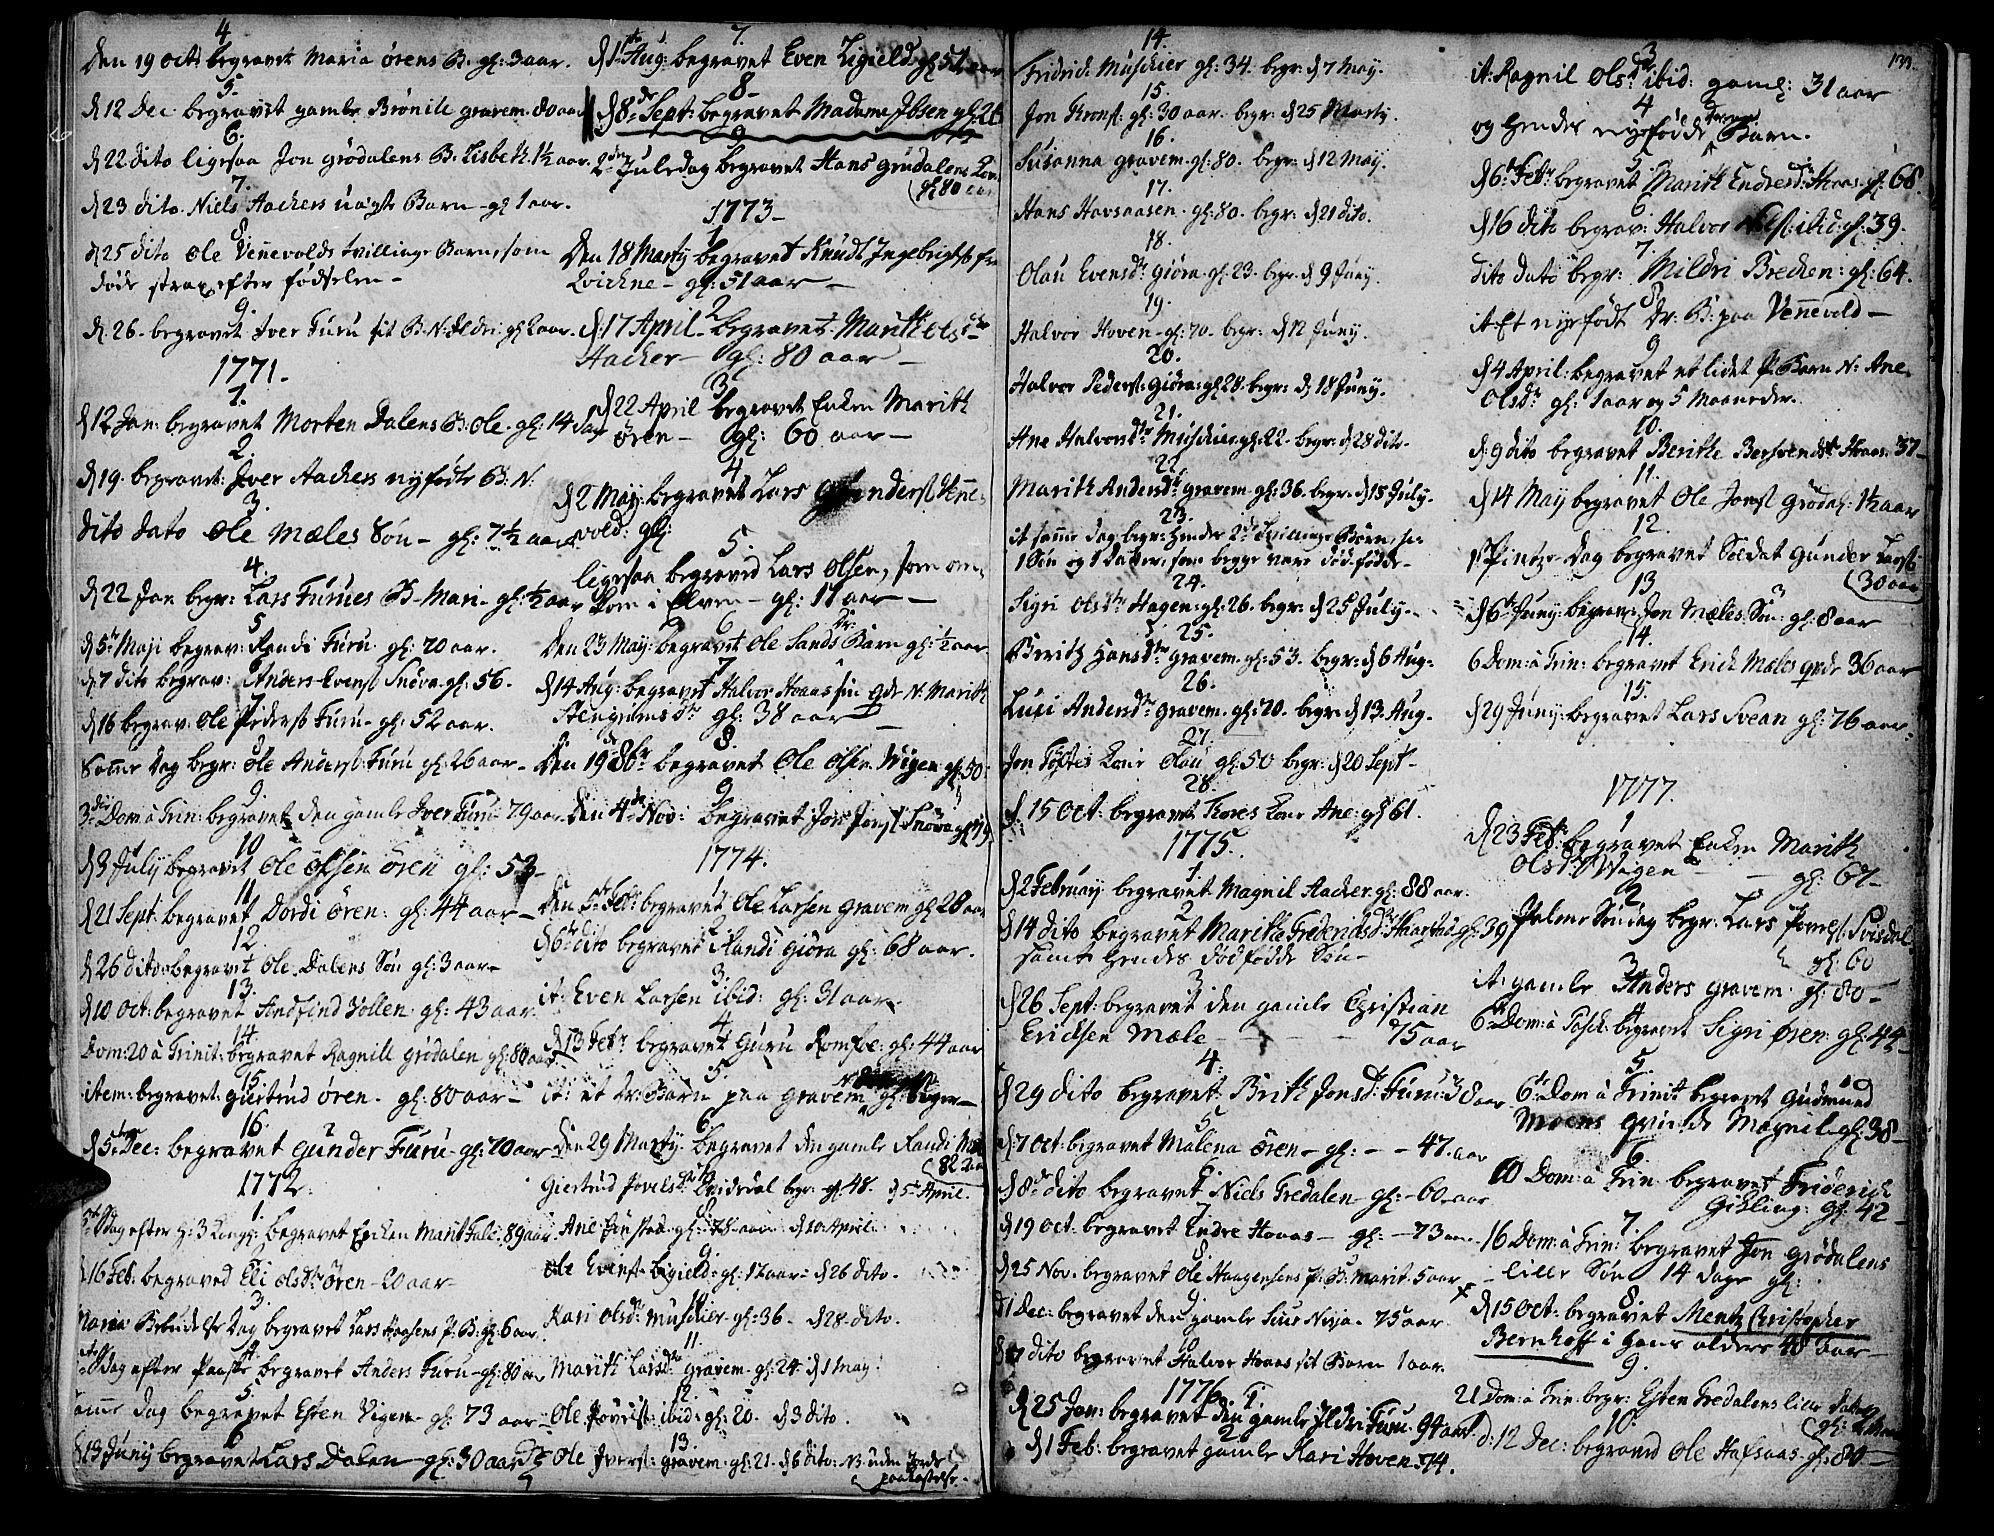 4
Den 19 Oct: begravet Maria Ørens B. gl: 3 aar.
5.
d 12 Dec begravet gamle Brønild gravem. 80 aar
6.
d 22 dito ligesaa Jon Grødalens B. Lisbeth. 1½ aar.
7.
d 23 dito. Niels Aachers uægte Barn gl 1 aar.
8
d 25 dito Ole Vennevolds tvillinge Børn, som
døde strax efter fødselen -
9.
d. 26 - begravet Iver Furu sit B. N: Ildri: gl 2 aar.
1771.
1.
d 12 Jan: begravet Morten Dalens B: Ole. gl: 14 dag
2.
d 19. begravet Iver Aachers nyfødte B. N.
3.
dito dato Ole Mæles Søn - gl: 7½ aar
4.
d 22 Jan begr: Lars Furues B - Mari - gl: ½ aar
5
d 5te Maji begrav: Randi Furu gl: 70 aar.
6
d 7 dito begrav: Anders Evens: Snøva gl: 56.
7
d 16 begrav: Ole Peders: Furu - gl: 52 aar.
8
Samme Dag begr: Ole Anders: Furu gl: 26 aar -
9.
3die Dom: à Trin: begravet den gamle Iver Furu - 79 aar
10
d 3 July begravet Ole Olsen Øren gl: 53 -
11
d 21 Sept: begravet Dordi Øren: gl: 44 aar -
12
d 26 dito begravet Ole Dalens Søn gl: 3 aar -
13.
d 10 Oct: begravet Andfind Tollen gl: 43 aar
14.
Dom: 20 à Trinit: begravet Ragnill Grødalen gl: 80 aar
15.
item: begravet Giertrud Øren - gl: 80 aar -
16.
d 5te Dec: begravet Gunder Furu - gl: 70 aar -
1772.
1.
dag efter H: 3 Kong: begravet Enken Marit Fale. 89 aar
2
d 16 Feb: begraved Eli Olsdtr Øren - 20 aar -
3.
Maria Bebudelse Dag begravet Lars Hoasens P. B: gl: 6 aar
4.
dag efter Paaske begravet Anders Furu - gl: 80 aar
5.
Samme dag begravet Esten Vigen - gl: 73 aar -
6
d 13 Juny begravet Lars Dalen - gl: 30 aar
7.
d 1te Aug: begravet Even Ligield gl 51 aar
8 -
d 8de Sept: begravet Madame Ibsen gl: 26
9
2den Juledag begravet Hans Grødalens Kone
gl: 80 aar
1773 -
1
Den 18 Marty begravet Knudt Ingebrigts: fra
Qvickne - gl: 51 aar -
2
d: 17 April - begravet Marith Olsdtr
Aacher - gl: 80 aar -
3.
d 22 April begravet Enken Marith
Øren - gl: 60 aar -
4
d 2 May: begravet Lars Venne-
vold: gl:
5.
ligesaa begraved Lars Olsen, som om-
kom i Elven - gl: 11 aar -
6
Den 23 May: begravet Ole Sands Dr. Barn gl: ½ aar
7
d 14 Aug: begravet Halvor Hoaas sin Qde N. Marith
Stengrimsdtr gl: 38 aar -
8.
Den 19 8br begravet Ole Olsen Vigen gl: 50
9
Den 4de Nov: begravet Joen Jons: Snøva gl: 79
1774.
1
Den 5te Feb: begravet Ole Larsen Gravem gl 28 aar
2
d 6te dito begravet Randi Giøra gl: 68 aar.
3.
it: Even Larsen ibid: gl: 31 aar.
4.
d 13 Feb: begravet Guru Romfoe: gl: 44 aar
5.
it: et Dr: Barn paa Gravem gl: uger -
6.
Den 29 Marty begravet den gamle Randi Mæle
82 aar
7
Giertrud Povelsdtr Svidsdal begr. gl 48. d 5te April.
8
Ane gl: 78 aar d 10 April.
9.
Ole Evens: Ligield gl: 17 aar - d 26 dito.
10
Kari Olsdtr Muschier - gl: 36 - d 28 dito.
11.
Marith Larsdtr Gravem gl: 24 d 1 May.
12.
Ole Povels: ibid: gl: 20. d 3 dito.
13.
Ole Ivers: Gravem gl: 21 d 6 dito: NB uden Jords
paakastelse.
14.
Fridrich Muschier gl: 34. begr: d 7 May.
15.
Jon Krons: gl: 30 aar. begr: d 25 Marty.
16.
Susanna Gravem gl: 80. begr: d 12 May.
17.
Hans Havsaasen gl: 80. begr: d 21 dito.
18.
Olau Evensdtr Giøra gl: 23. begr. d 9 Juny.
19.
Halvor Hoven - gl: 70. begr: d 12 Juny.
20.
Halvor Peders: Giøra: gl 28. begr: d 18 Juny.
21.
Ane Halvorsdtr Muschier gl: 22. begr: d 28 dito.
22.
Marith Andersdtr Gravem gl: 36. begr: d 15 July.
23.
it samme dag begr: hendes 2de Tvillinge Børn, sc.
1 Søn og 1 Datter, som begge vare død-fødde -
24.
Sigri Olsdtr Hagen: gl: 26. begr. d 25 July. -
25.
Berith Hansdtr Gravem. gl: 53. begr: d 6 Aug:
26.
Luci Andersdtr Gravem. gl: 70. begr: d 13 Aug.
27.
Jon Toftes Kone Olau gl: 50 begr: d 20 Sept -
28.
d 15 Oct: begravet Thores Kone Ane: gl 61.
1775.
1.
d 2 February begravet Magnil Aacher gl: 88 aar.
2
d 14 dito begravet Marithe Fredrichsdtr Haarstad gl: 39
samt hendes dødfødde Søn -
3
d 26 Sept: begravet den gamle Christian
Erichsen Mæle - - - 75 aar
4.
d 29 dito begravet Brith Jonsdtr Furu: 38 aar
5
d 7 Oct: begravet Malena Øren - gl: - - 47. aar
6
d 8de dito begravet Niels Fredalen - gl: - 60 aar
7
d 19 Oct: begravet Endre Hoaas - gl: - 73 aar
8
d 25 Nov. begravet Ole Haagensens P. B: Marit. 5 aar
9
d 1 Dec: begravet den gamle Siur Nisja - 75 aar
10
d dito begravet Halvor Hoaas sit Barn 1 aar.
1776. 1.
d 25 Jan: begravet den gamle Ildri Furu. 94 aar
2
d 1 Feb: begravet gamle Kari Hoven. 74.
133.
3
it: Ragnil Olsdtr ibid: gaml: 31 aar
4
og hendes nyfødde Barn.
5.
d 6te Febr begravet Marith Endresdtr Hoaas gl: 68.
6
d 16 dito begrav: Halvor Nils: ibid: gl: 39.
7.
dito dato begr: Mildri Brechen: gl: 64.
8
it: Et nyefødt Dr: B: paa Vennevold -
9
d 4 April: begravet et lidet P. Barn N: Ane
Olsdtr gl: 1 aar og 5 Maaneder.
10.
d 9 dito begravet Berithe Bersvendsdtr Hoaas. 37 -
11.
d 14 May begravet Ole Jons: Grødal: 1½ aar
12.
1ste Pintze-dag begravet Soldat Gunder Lars:
30 aar
13
d 6te Juny: begrav: Jon Mæles Søn: gl: 8 aar
14.
6 Dom: à Trin: begravet Erich Mæles Qvde 36 aar
15.
d 29 Juny: begravet Lars Svean gl: 76 aar.
1777.
1
d 23 Feb: begravet Enken Marith
Olsdtr Wagen - gl: 67 -
2
Palme Søndag begr: Lars Joens: Svisdal
gl: 60
3
it: gamle Anders Gravem gl: 80 -
4
6te Dom: à Pasch: begravet Sigri Øren: gl: 44 -
5.
6te Dom à Trinit begravet Gudmund
Moens Qvinde Magnil gl: 38 -
6.
10 Dom: à Trin begravet Friderich
Gikling: gl: 42 -
7.
16 Dom: à Trin: begravet Jon Grødalens
lille Søn 14 dage gl:
8.
d 15 Oct: begravet Mentz Christopher
Bernhoft i hans alders 48 aar -
9.
21 Dom: à Trin: begr: Esten Fredalens lille datter
10
d: 12 Dec: begraved Ole Hafsaas gl: 80 -